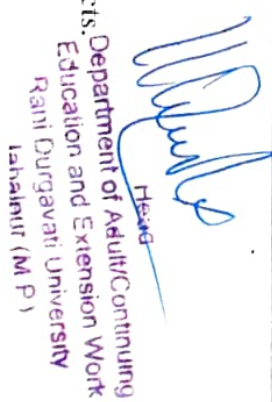 cts.
Head
Department of Adult/Continuing
Education and Extension Work
Rani Durgavati University
Jabalpur (M P)